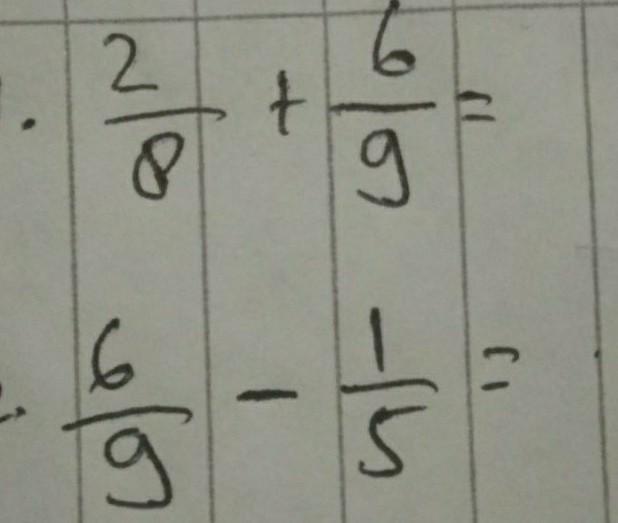 . 2/8 + 6/9 =
. 6/9 - 1/5 =